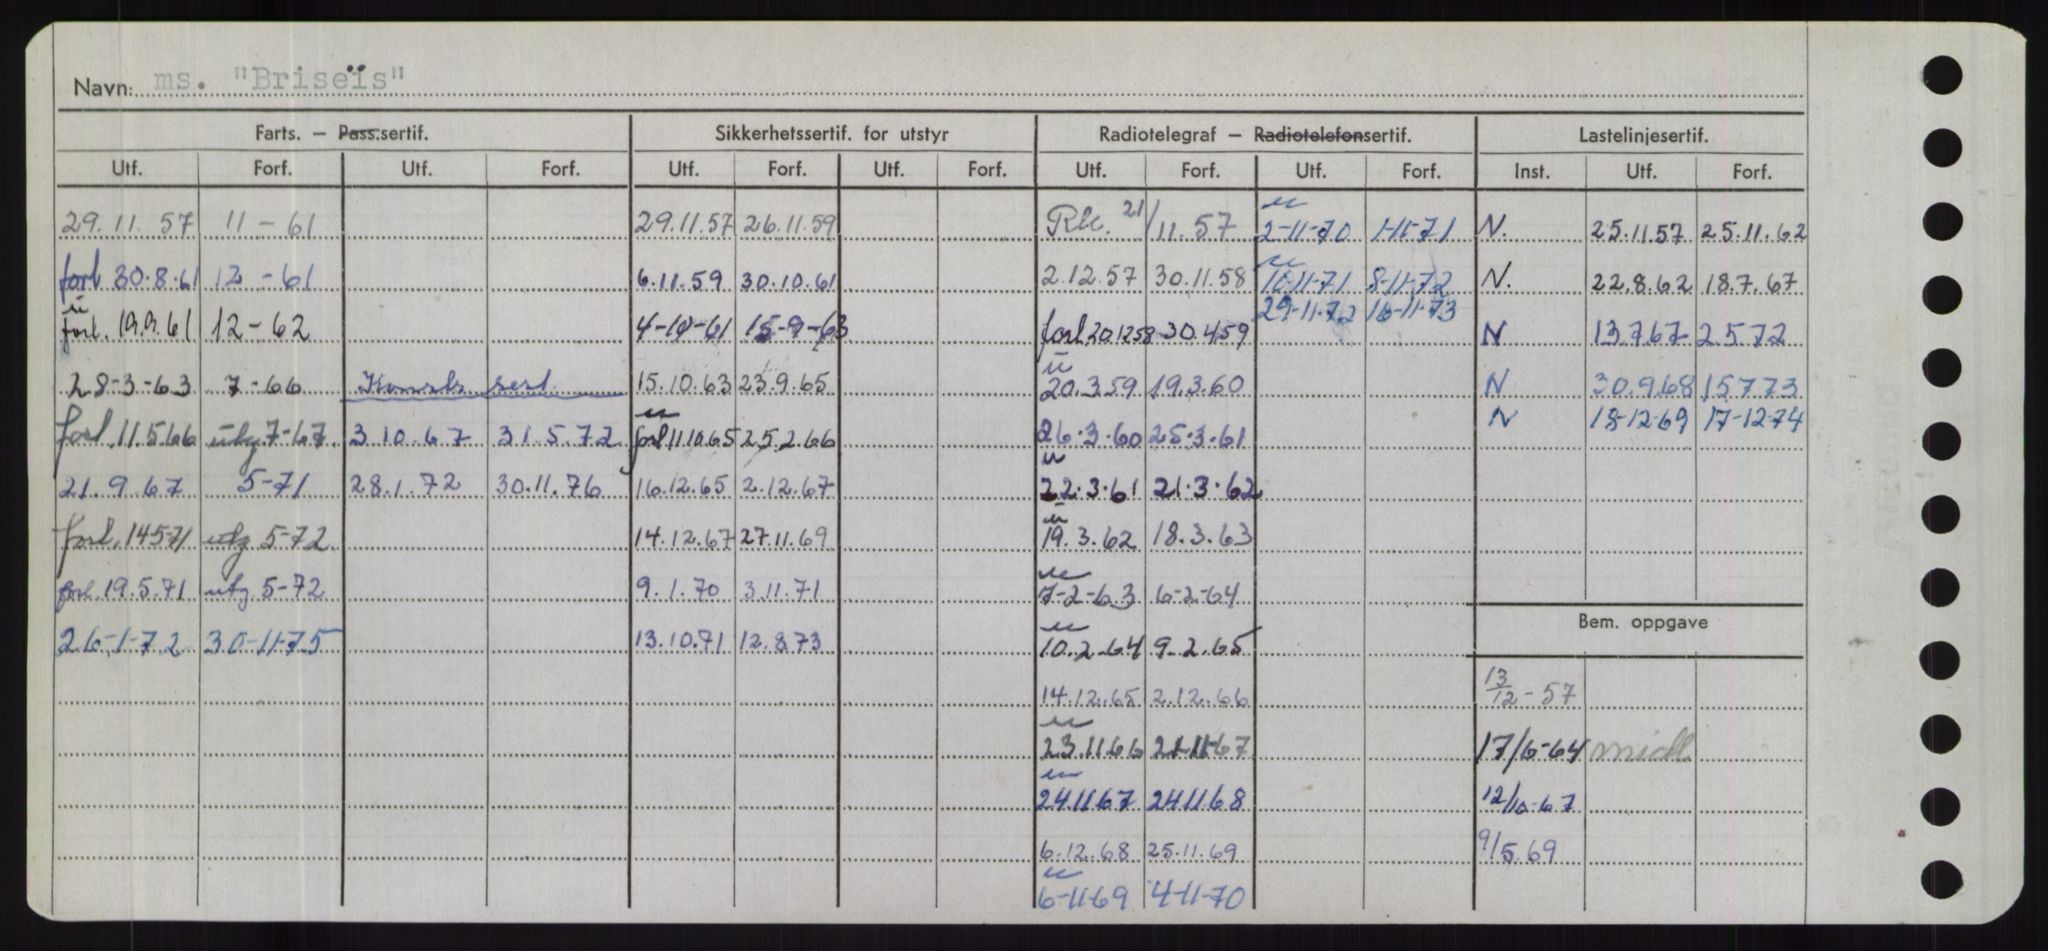 Navn: ms. "Briseïs"
Farts. — Pass.sertif. Sikkerhetssertif. for utstyr Radiotelegraf — Radiotelefonsertif. Lastelinjesertif.
Utf. Forf. Utf. Forf. Utf. Forf. Utf. Forf. Utf. Forf. Utf. Forf. Inst. Utf. Forf.
29.11.57 11-61 29.11.57 26.11.59 21/11.57 2-11-70 1-11-71 N. 25.11.57 25.11.62
forl 30.8.61 12-61 6.11.59 30.10.61 2.12.57 30.11.58 10-11-71 8-11-72 N. 22.8.62 18.7.67
29-11-72 16-11-73
forl. 19.9.61 12-62 4-10-61 15-9-63 forl 20.12.58 30.4.59 N 13.7.67 2.5.72
28-3-63 7-66 sert. 15.10.63 23.9.65 20.3.59 19.3.60 N 30.9.68 15.7.73
forl. 11.5.66 utg 7-67. 3.10.67 31.5.72 forl 11.10.65 25.2.66 26.3.60 25.3.61 N 18-12-69 17-12-74
21.9.67 5-71 28.1.72 30.11.76 16.12.65 2.12.67 22.3.61 21.3.62
forl. 14.5-71 utg 5-72 14.12.67 27.11.69 19.3.62 18.3.63
forl. 19.5.71 utg 5-72 9.1.70 3.11.71 7-2-63 6-2-64
Bem. oppgave
26-1-72 30-11-75 13.10.71 12.8.73 10.2.64 9.2.65
14.12.65 2.12.66 13/12-57
23.11.66 21-11-67 17/6-64 midl
24.11.67 24.11.68 12/10-67
6.12.68 25.11.69 9/5.69
6-11-69 4-11-70